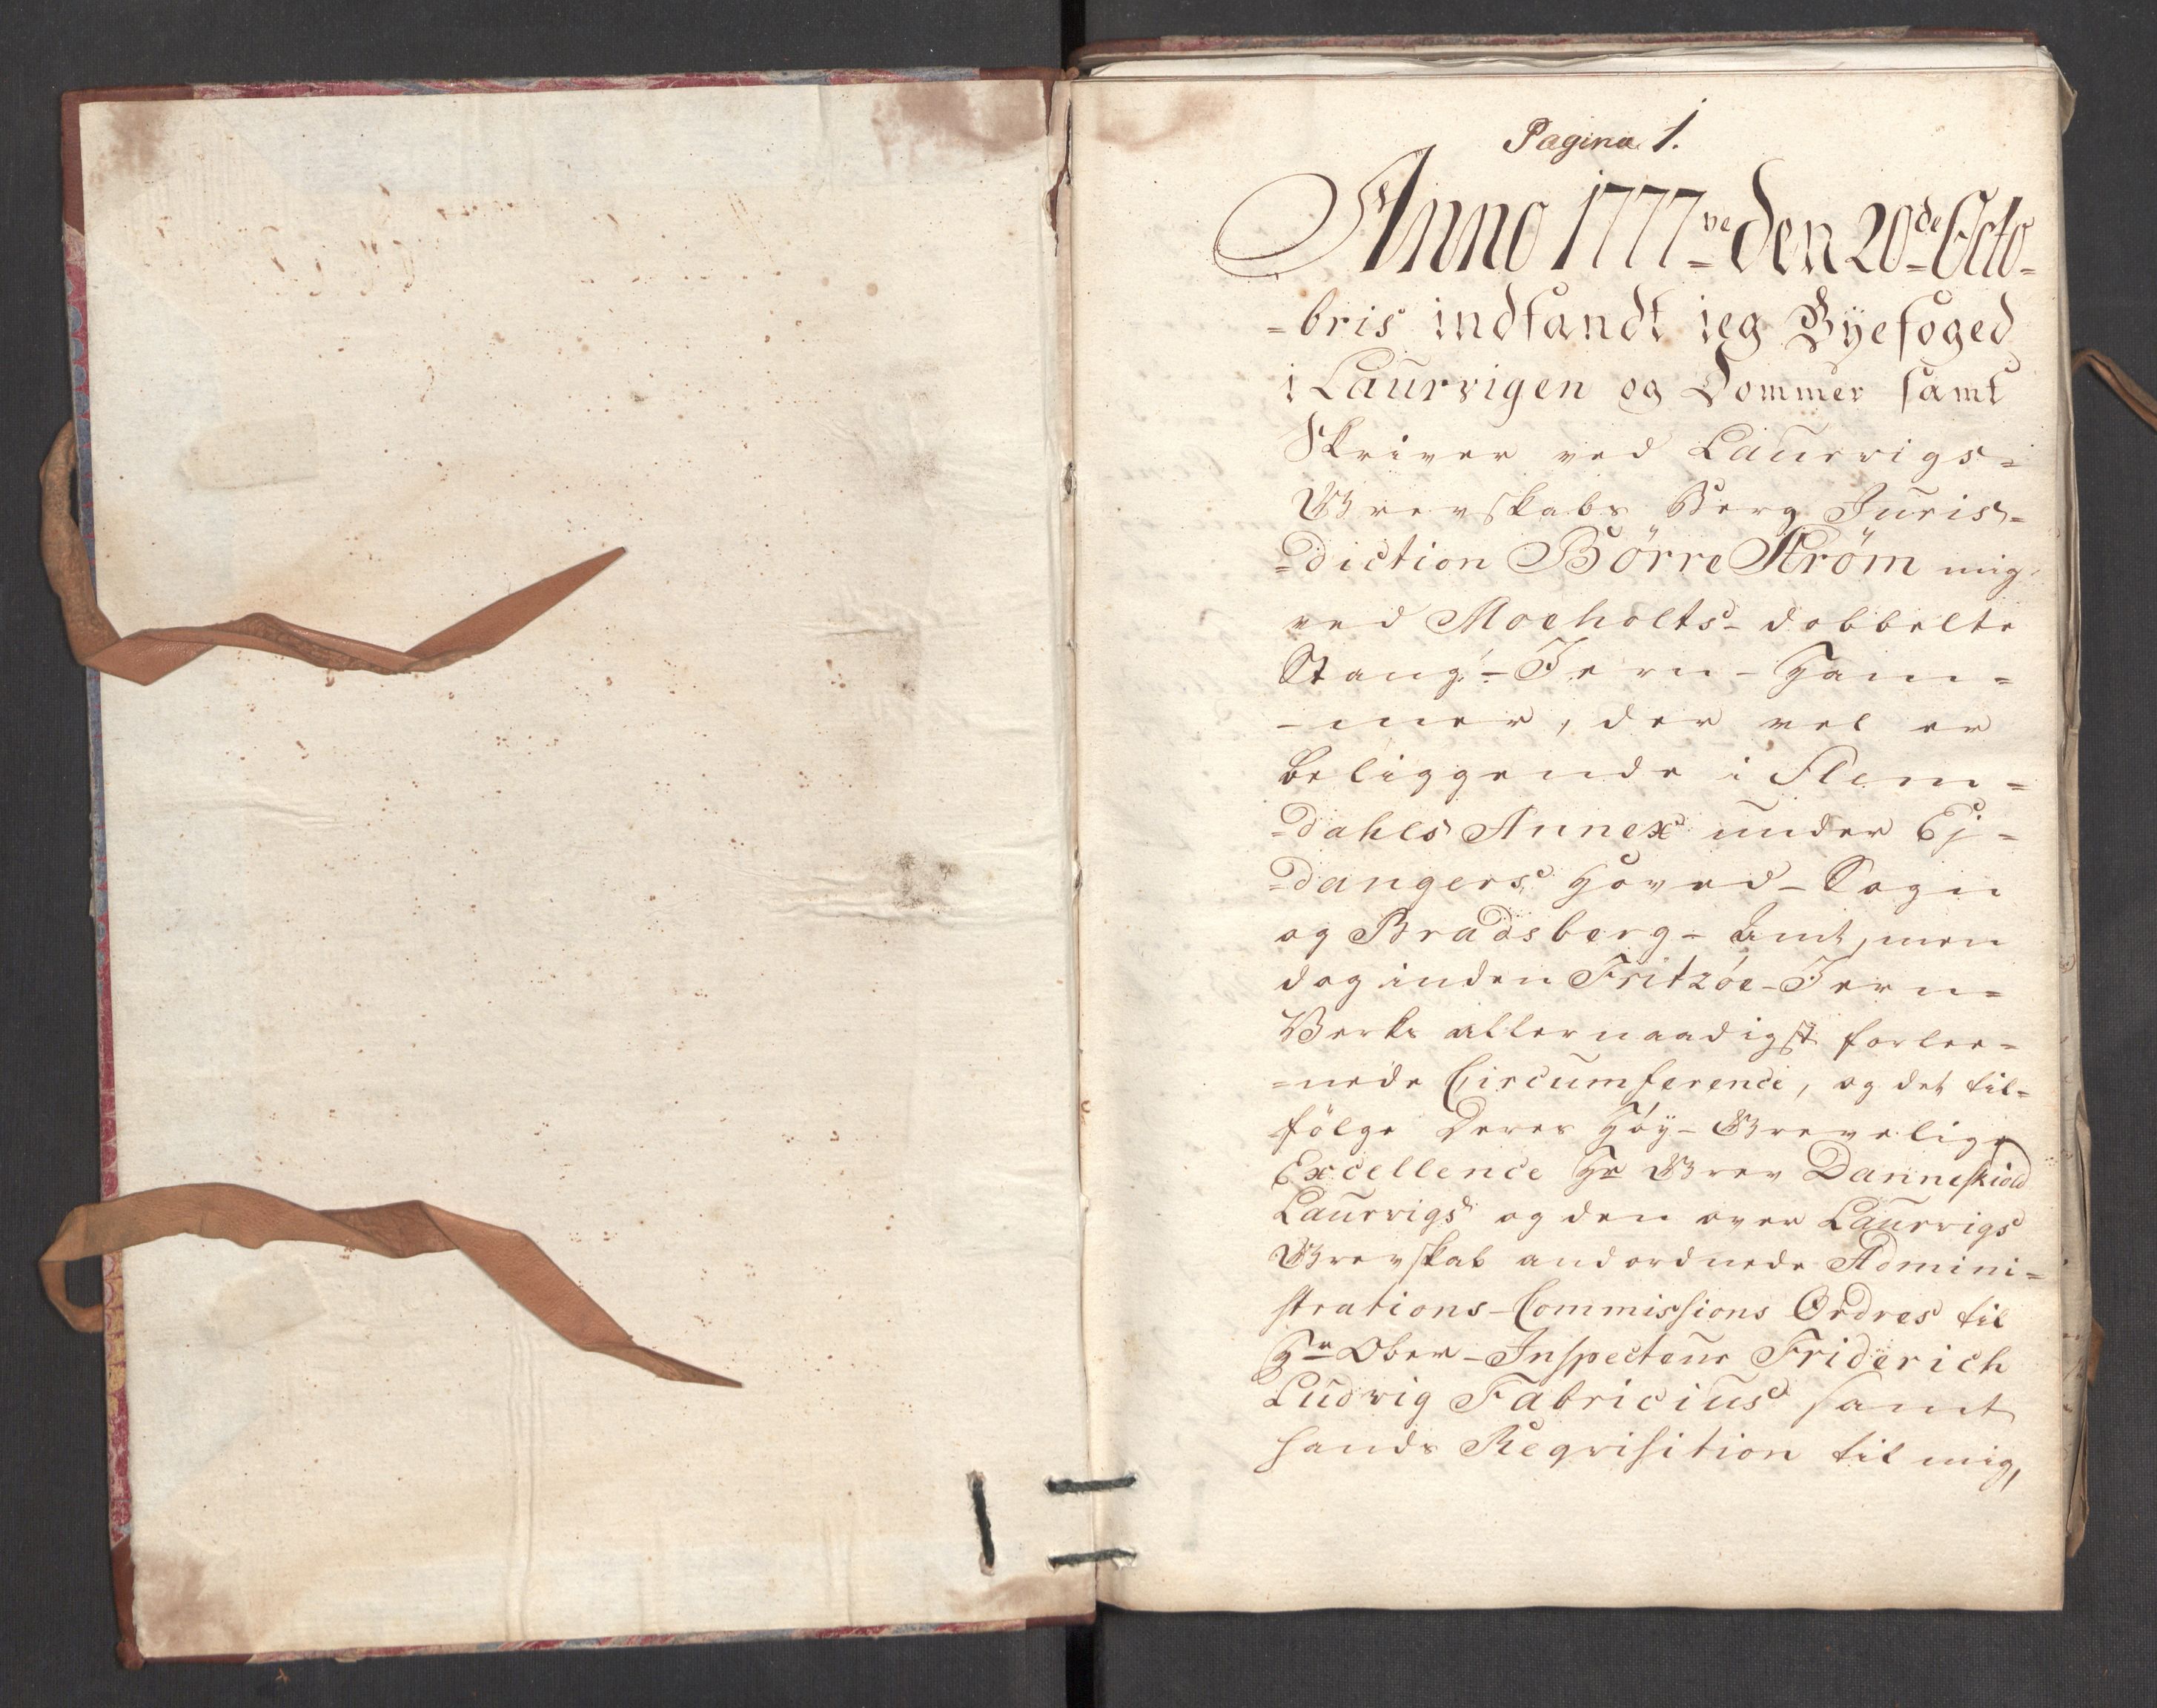 Pagina 1.
Anno 1777ve den 20de Octo=
=bris indfandt jeg Býefoged
i Laurvigen og Dommer samt
Skriver ved Laurvigs=
Grevskabs Berg Juris=
=diction Börre Ström mig
ved Moeholts-dobbelte
Stang-Jern-Ham=
-mer, der vel er
beliggende i Slem=
=dahls Annex under Ej=
=dangers Hoved-Sogn
og Bradsberg-Amt, men
dog inden Fritzöe-Jern=
Verks allernaadigst forlee=
=nede Circumference, og det til=
fölge Deres Höÿ-Grevelige
Excellence Hr Grev Danneskiold
Laurvigs og den over Laurvigs
Grevskab andordnede Admini=
strations-Commissions Ordres til
Hr Ober-Inspecteur Friderich
Ludvig Fabricius samt
hands Reqvisition til mig,